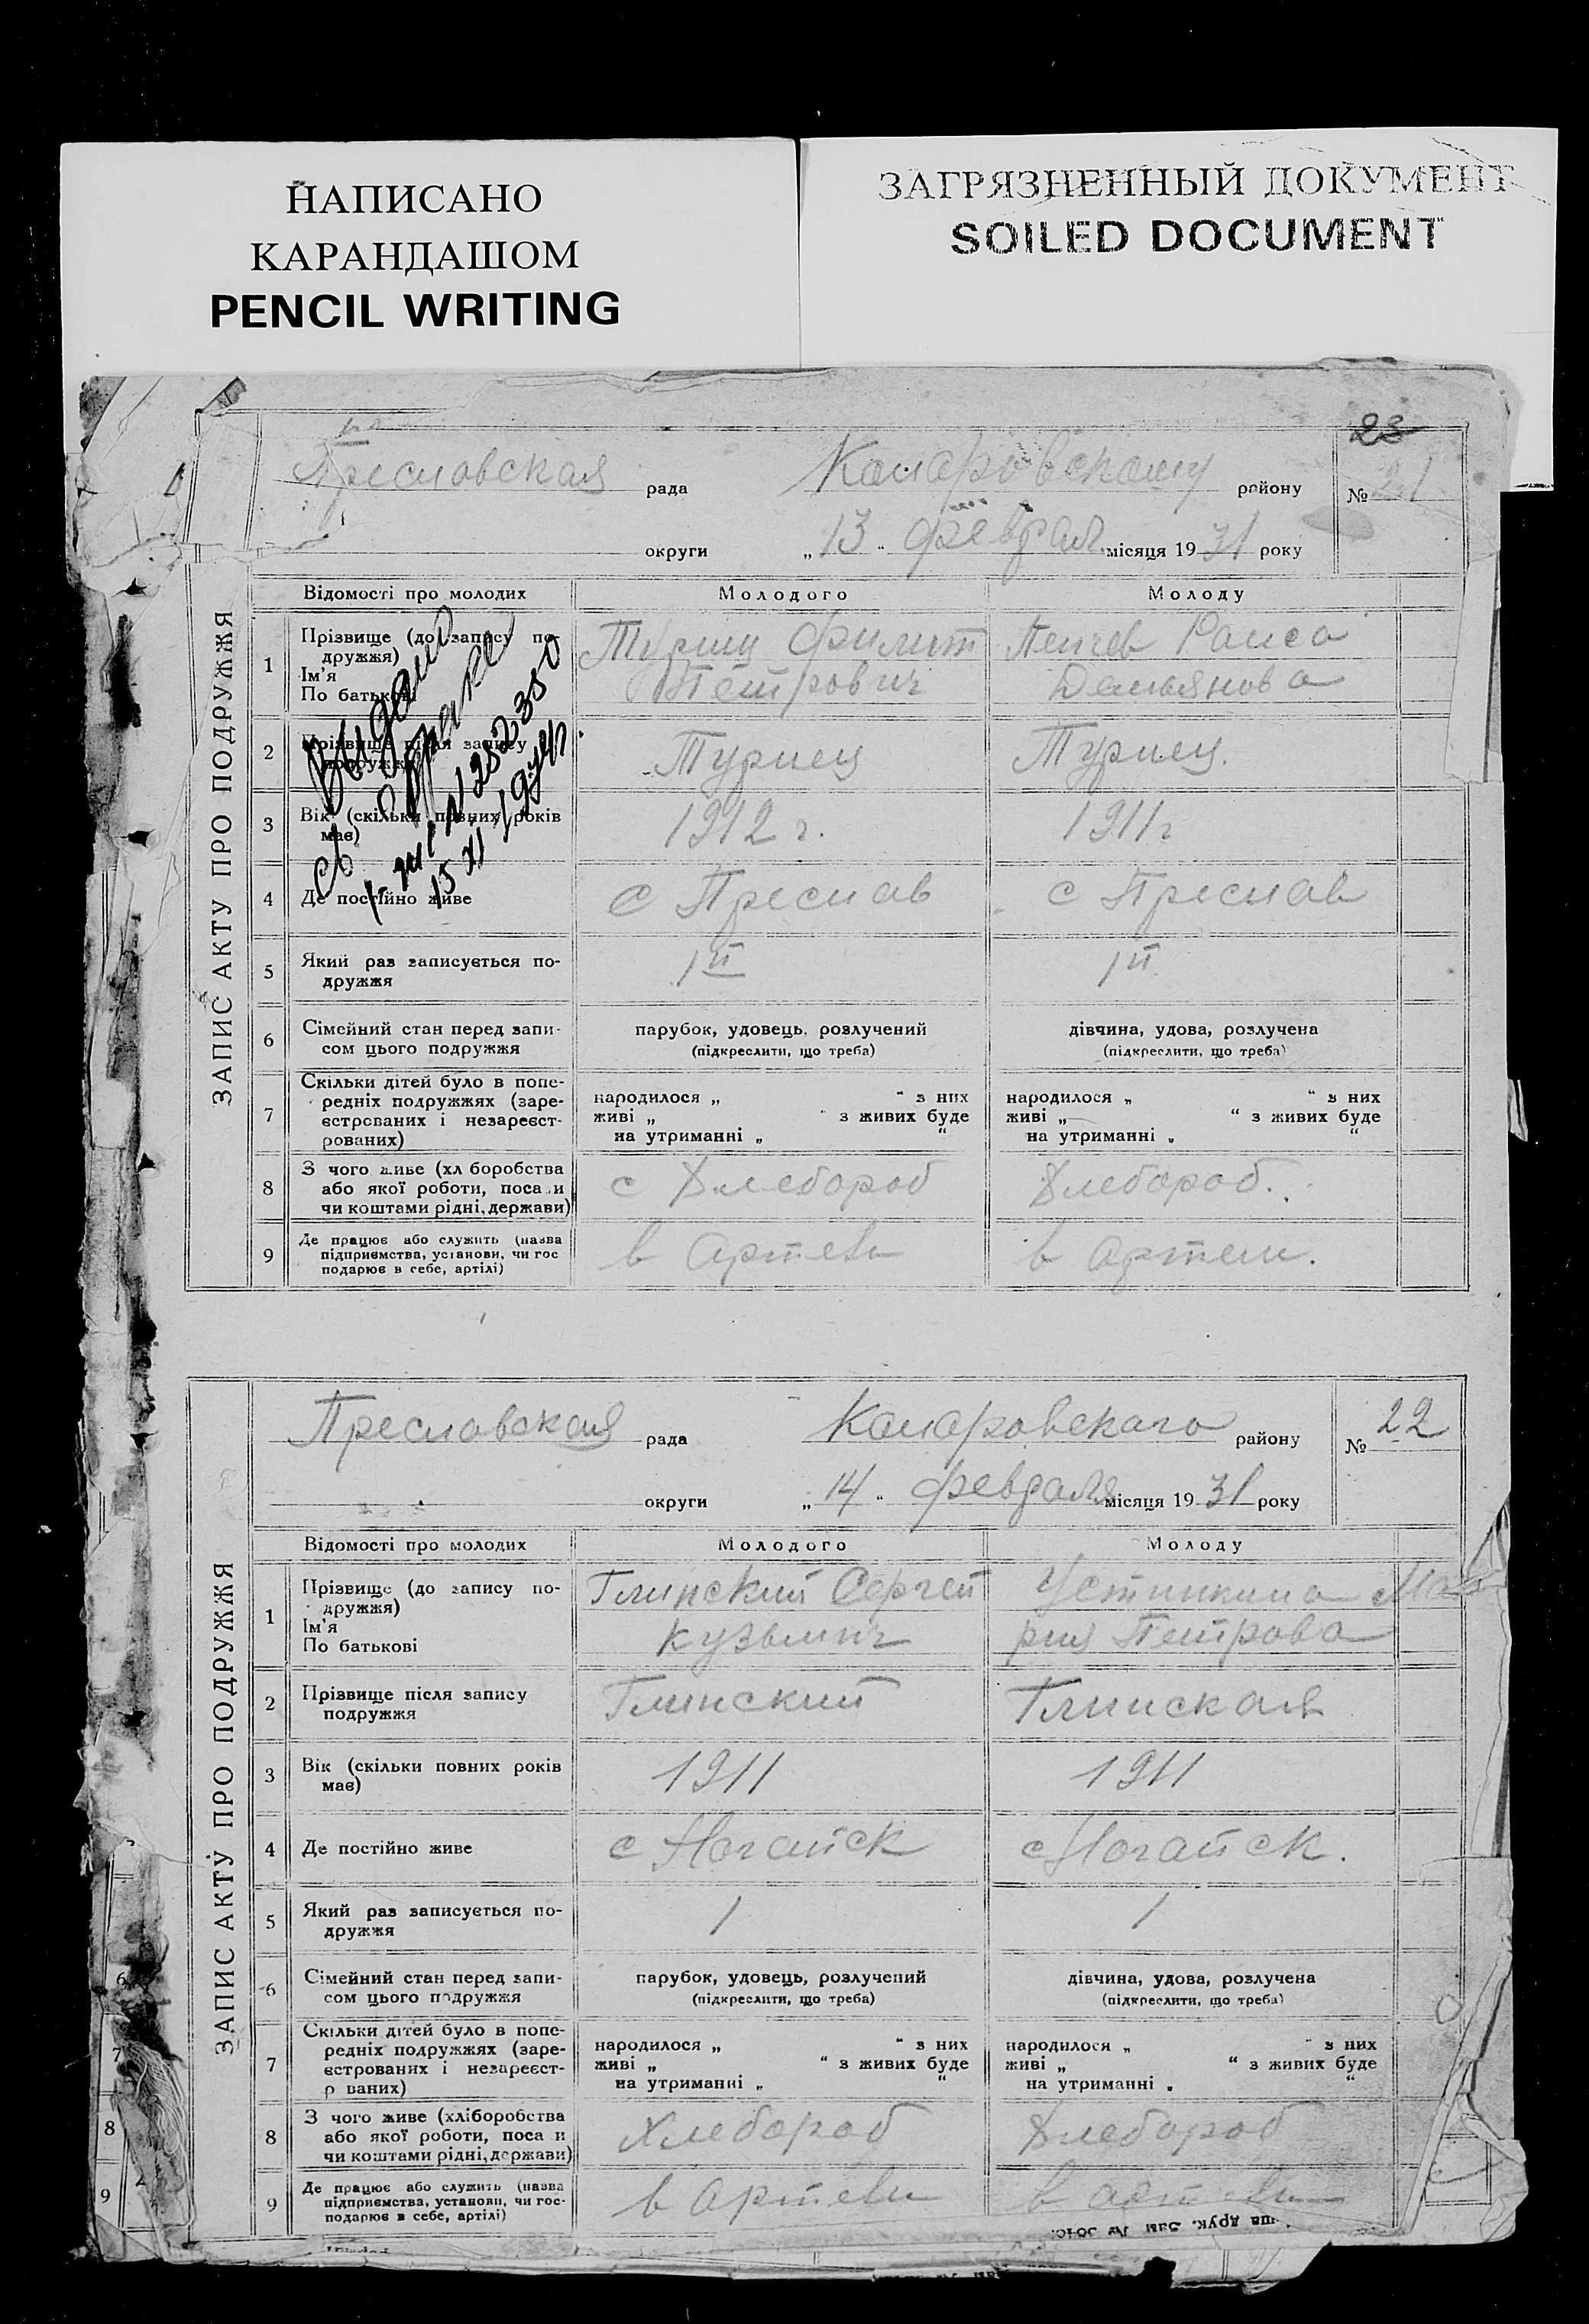 НАПИСАНО
КАРАНДАШОМ
PENCIL WRITING
ЗАГРЯЗНЕННЫЙ ДОКУМЕНТ
SOILED DOCUMENT
23
Пресловская рада Комаровскому району № 21
округи „13“ февраля місяця 1931 року
ЗАПИС АКТУ ПРО ПОДРУЖЖЯ
Відомості про молодих Молодого Молоду
1 Прізвище (до запису по-
дружжя)
Ім'я
По батькові
Филип
Петрович
Пенчев Раиса
Демьянова
2 Прізвище після запису
подружжя
Турнец
Турнец.
3 Вік (скільки повних років
має)
1912 г.
1911 г
4 Де постійно живе
с Преслав
с Преслав
5 Який раз записується по-
дружжя
1й
1й
6 Сімейний стан перед запи-
сом цього подружжя
парубок, удовець, розлучений
(підкреслити, що треба)
дівчина, удова, розлучена
(підкреслити, що треба)
7 Скільки дітей було в попе-
редніх подружжях (заре-
єстрованих і незареєст-
рованих)
народилося „ “ з них
живі „ “ з живих буде
на утриманні „ “
народилося „ “ з них
живі „ “ з живих буде
на утриманні „ “
8 З чого живе (хліборобства
або якої роботи, посади
чи коштами рідні, держави)
с Хлебороб
Хлебороб.
9 Де працює або служить (назва
підприємства, установи, чи гос
подарює в себе, артілі)
в Артели
в Артели.
Выдано
15 XI
Пресловская рада Комаровского району № 22
округи „14“ февраля місяця 1931 року
ЗАПИС АКТУ ПРО ПОДРУЖЖЯ
Відомості про молодих Молодого Молоду
1 Прізвище (до запису по-
дружжя)
Ім'я
По батькові
Глинский Сергей
Кузьмич
Устинкина Ма
рия Петрова
2 Прізвище після запису
подружжя
Глинский
Глинская
3 Вік (скільки повних років
має)
1911
1911
4 Де постійно живе
с Ногайск
с Ногайск.
5 Який раз записується по-
дружжя
1
1
6 Сімейний стан перед запи-
сом цього подружжя
парубок, удовець, розлучений
(підкреслити, що треба)
дівчина, удова, розлучена
(підкреслити, що треба)
7 Скільки дітей було в попе-
редніх подружжях (заре-
єстрованих і незареєст-
рованих)
народилося „ “ з них
живі „ “ з живих буде
на утриманні „ “
народилося „ “ з них
живі „ “ з живих буде
на утриманні „ “
8 З чого живе (хліборобства
або якої роботи, посади
чи коштами рідні, держави)
Хлебороб
Хлебороб
9 Де працює або служить (назва
підприємства, установи, чи гос-
подарює в себе, артілі)
в Артели
в артели
6
7
8
9